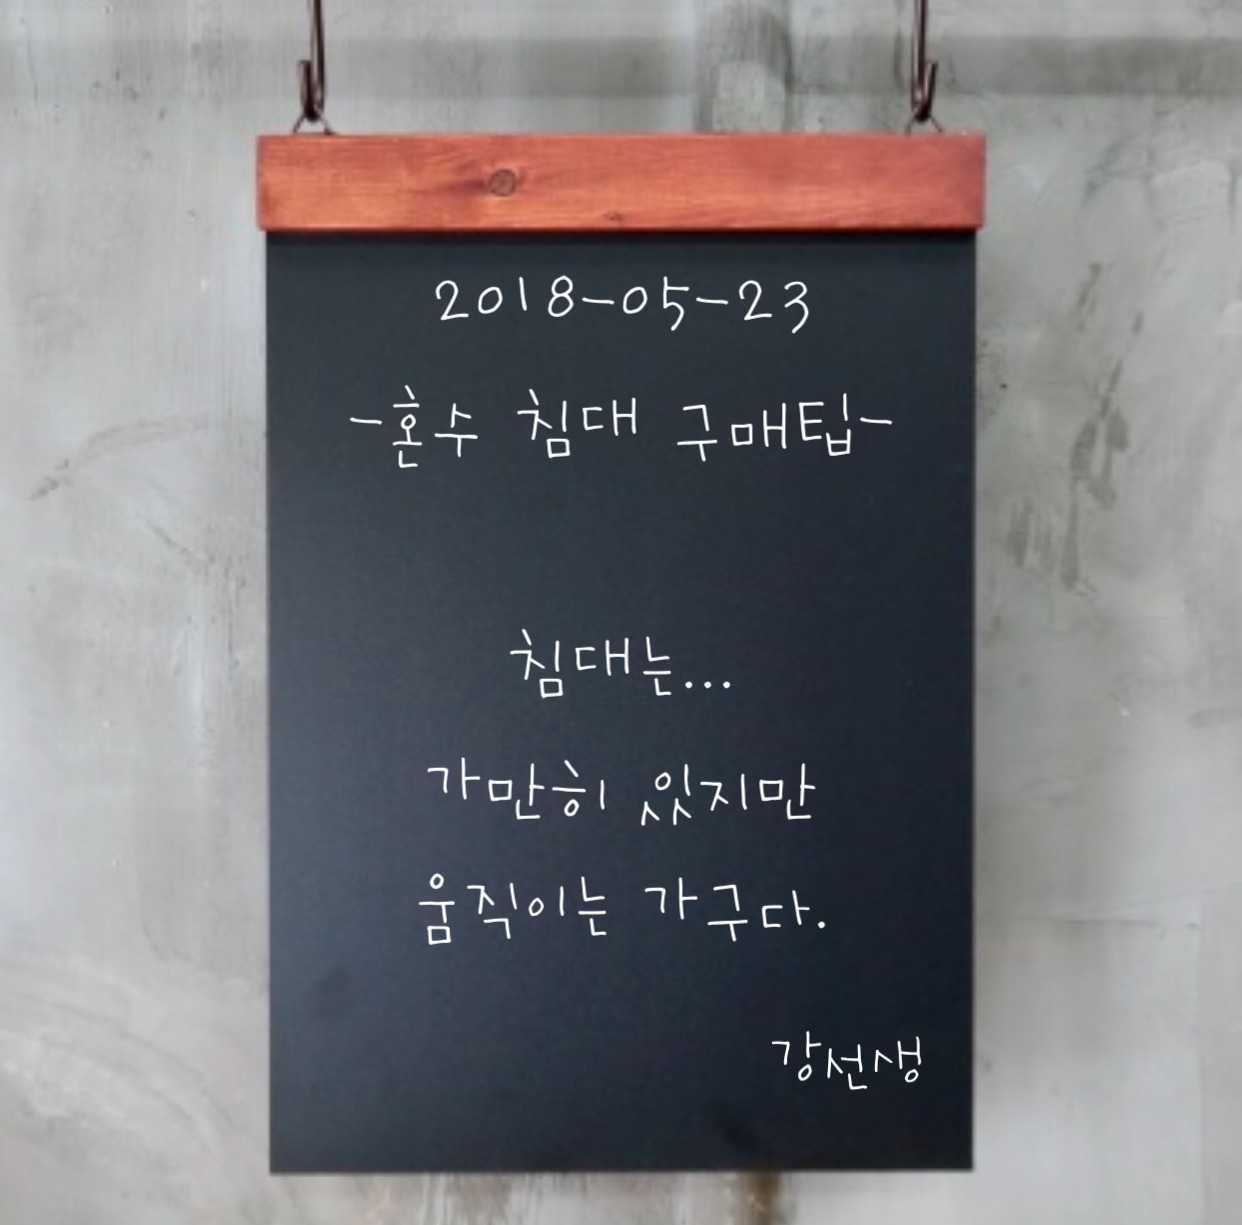 2018-05-23
-혼수 침대 구매팁-
침대는...
가만히 있지만
움직이는 가구다.
강선생